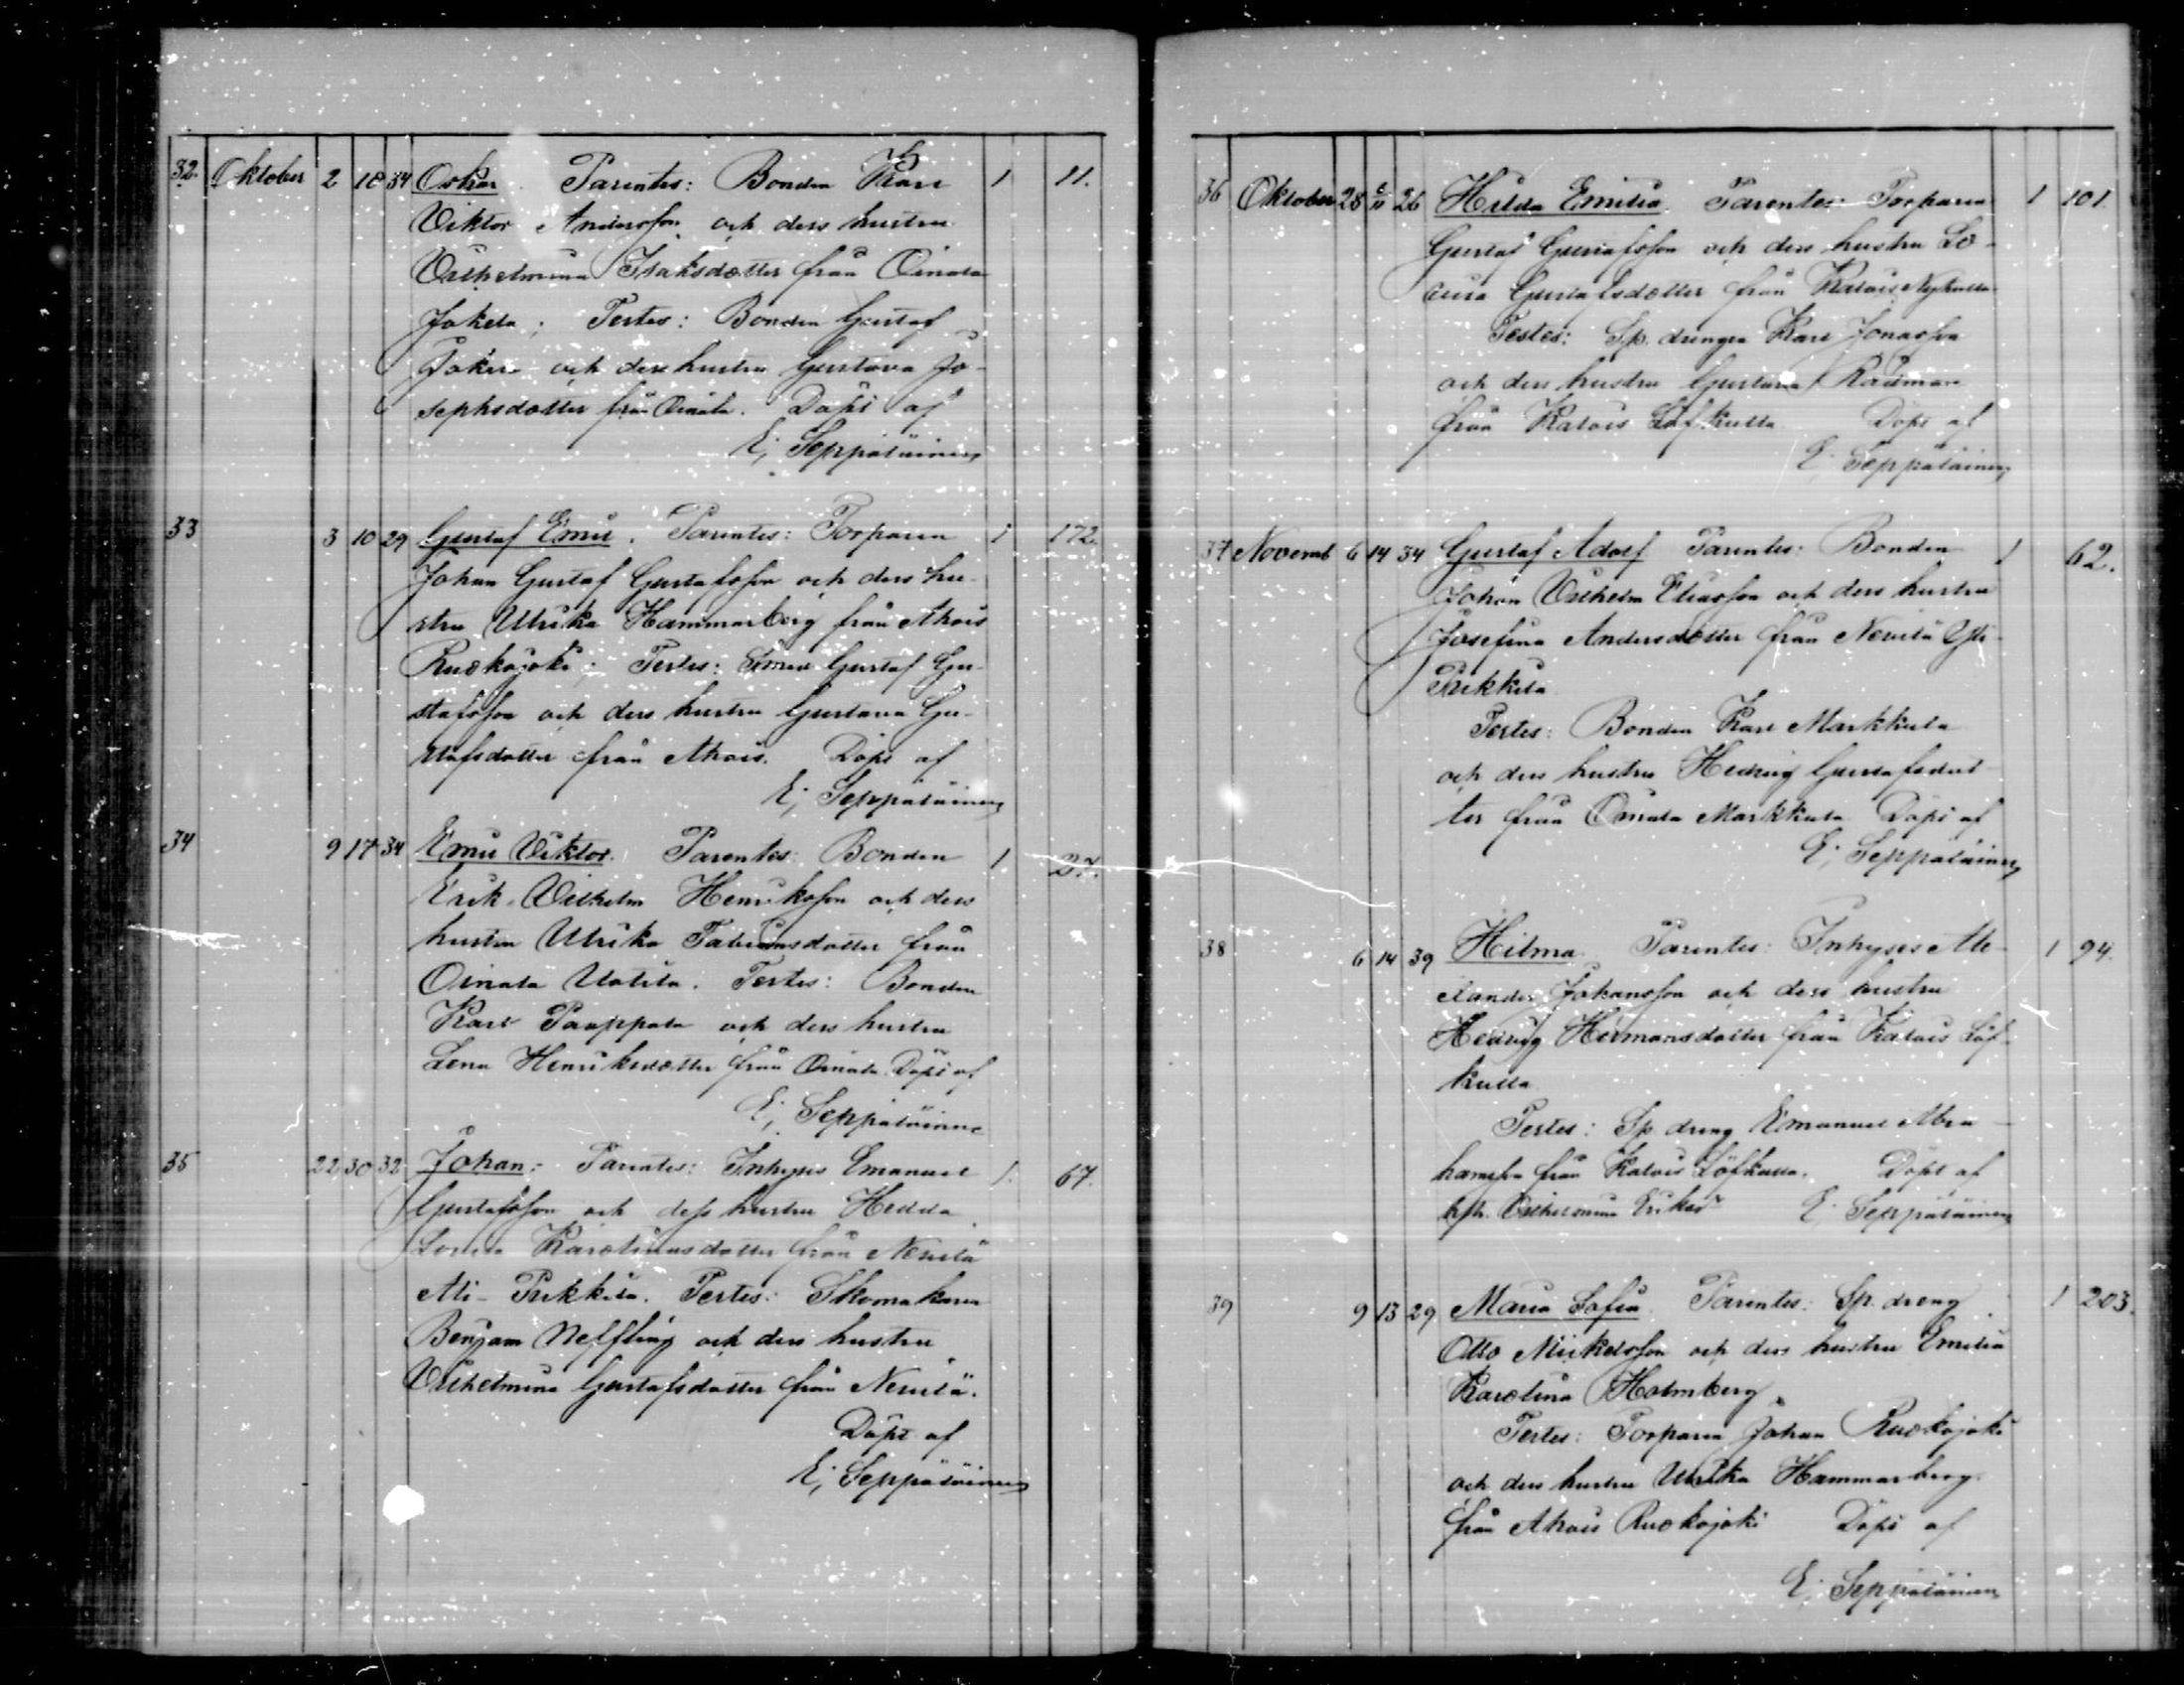 32. Oktober 2 10 34 Oskar. Parentes: Bonden Karl 1 11.
Viktor Andersson och dess hustru
Vilhelmina Isaksdotter från Oinala
Jokela; Testes: Bonden Gustaf
och dess hustru Gustava Jo-
sephsdotter från Oinala. Döpt af
E; Seppäläinen
33 3 10 29 Gustaf Emil. Parentes: Torparen 1 172.
Johan Gustaf Gustafsson och dess hu-
stru Ulrika Hammarberg från Ahois
Ruokojoki; Testes: Gustaf Gu-
stafsson och dess hustru Gustava Gu-
stafsdotter från Ahois. Döpt af
E; Seppäläinen
34 9 17 34 Emil Viktor. Parentes: Bonden 1 27.
Erik Vilhelm Henriksson och dess
hustru Ulrika Fabiansdotter från
Oinala Uotila. Testes: Bonden
Karl Pauppala och dess hustru
Lena Henriksdotter från Oinala. Döpt af
E; Seppäläinen
35 22 30 32 Johan. Parentes: Inhyses Emanuel 1. 67.
Gustafsson och dess hustru Hedda
Lovisa Karolinasdotter från Nenilä
Ali-Pirkkilä. Testes: Skomakaren
Benjam och dess hustru
Vilhelmina Gustafsdotter från Nenilä.
Döpt af
E; Seppäläinen
36 Oktober 28 6/11 26 Hilda Emilia. Parentes: Torparen 1 101
Gustaf Gustafsson och dess hustru Lo-
visa Gustafsdotter från Kalois Nykulla.
Testes: Sp. drengen Karl Jonasson
och dess hustru Gustava Rådman
från Kalois Löfkulla Döpt af
E; Seppäläinen
37 Novemb 6 14 34 Gustaf Adolf Parentes: Bonden 1 62.
Johan Vilhelm Eliasson och dess hustru
Josefina Andersdotter från Nenilä Yli-
Pirkkilä
Testes: Bonden Karl Markkula
och dess hustru Hedvig Gustafsdot-
ter från Oinala Markkula Döpt af
E; Seppäläinen
38 6 14 39 Hilma. Parentes: Inhyses Ale- 1 94.
xander Johansson och dess hustru
Hedvig Hermansdotter från Kalois Löf-
kulla
Testes: Sp. dreng Emanuel Abra-
hamsson från Kalois Löfkulla. Döpt af
hstr. Vilhelmina Eriksd E; Seppäläinen
39 9 13 29 Maria Sofia. Parentes: Sp. dreng 1 203.
Otto Mickelsson och dess hustru Emilia
Karolina Holmberg.
Testes: Torparen Johan Ruokojoki
och dess hustru Ulrika Hammarberg
från Ahois Ruokojoki Döpt af
E; Seppäläinen